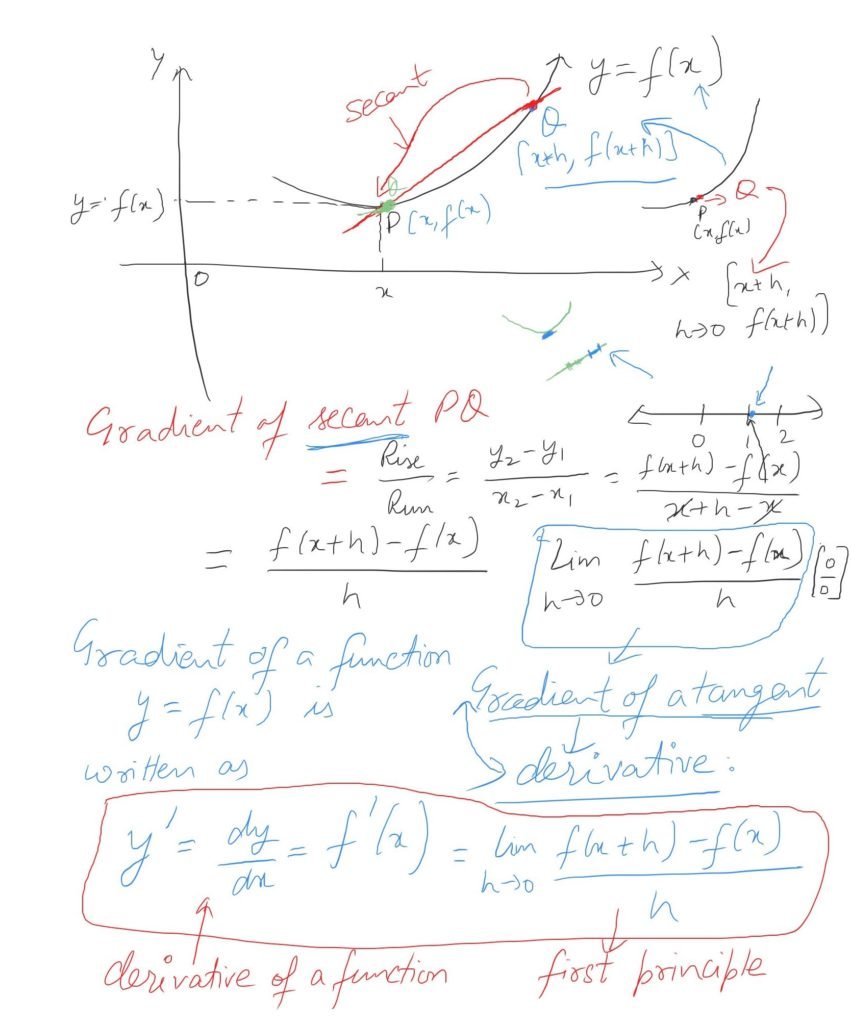 Y
secant
y = f(x)
Q
[x+h, f(x+h)]
y = f(x)
Q
P (x, f(x))
P → Q
(x, f(x))
O
x
X
[x+h,
h→0 f(x+h)]
Gradient of secant PQ
0 1 2
= Rise/Run = (y₂ - y₁)/(x₂ - x₁) = (f(x+h) - f(x))/(x + h - x)
= (f(x+h) - f(x))/h
Lim h→0 (f(x+h) - f(x))/h [0/0]
Gradient of a function
y = f(x) is
written as
Gradient of a tangent
derivative.
y' = dy/dx = f'(x) = lim h→0 (f(x+h) - f(x))/h
derivative of a function
first principle